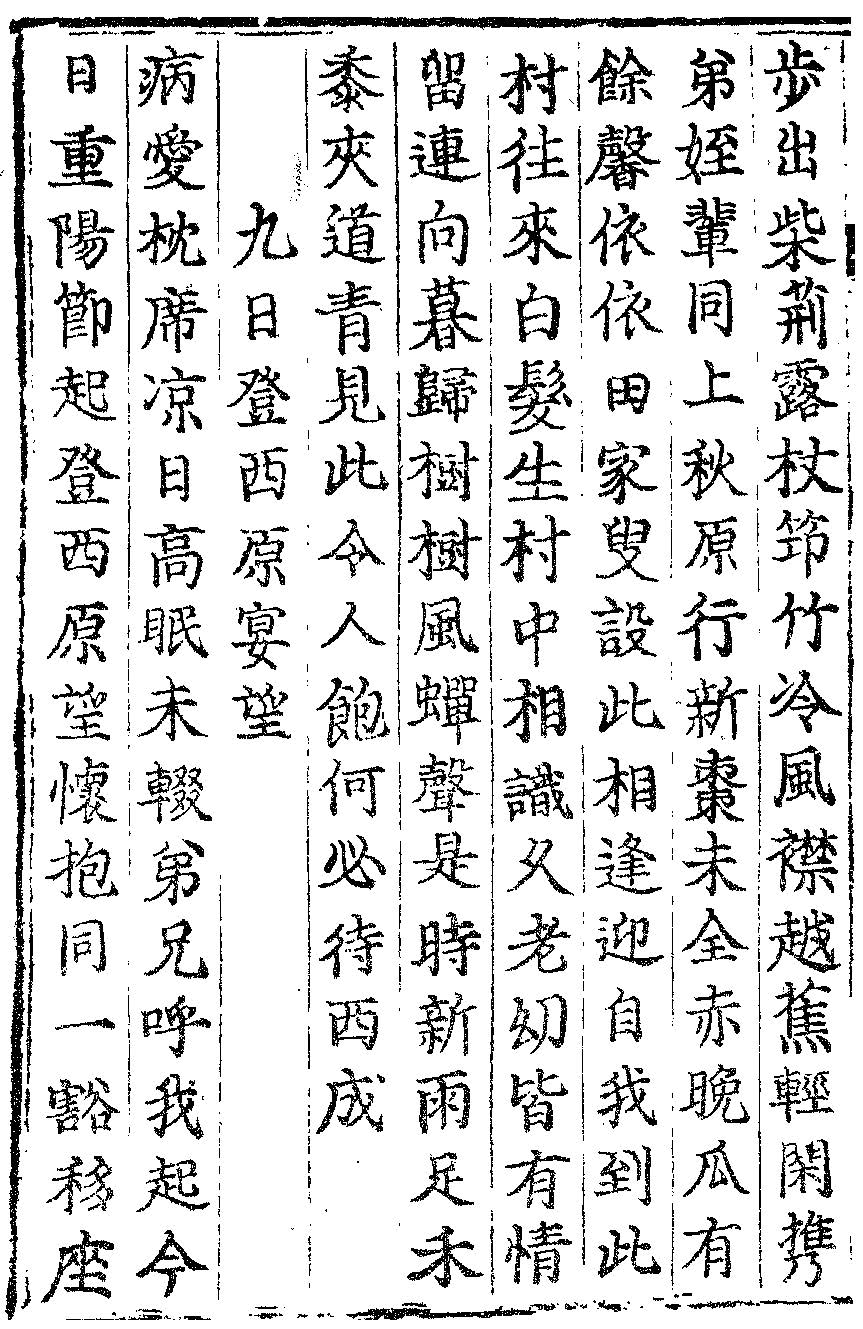 步出柴荊露杖笻竹冷風襟越蕉輕閑携
弟姪輩同上秋原行新棗未全赤晚瓜有
餘馨依依田家叟設此相逢迎自我到此
村往來白髮生村中相識久老幼皆有情
留連向暮歸樹樹風蟬聲是時新雨足禾
黍夾道青見此令人飽何必待西成
九日登西原宴望
病愛枕席凉日高眠未輟弟兄呼我起今
日重陽節起登西原望懷抱同一豁移座